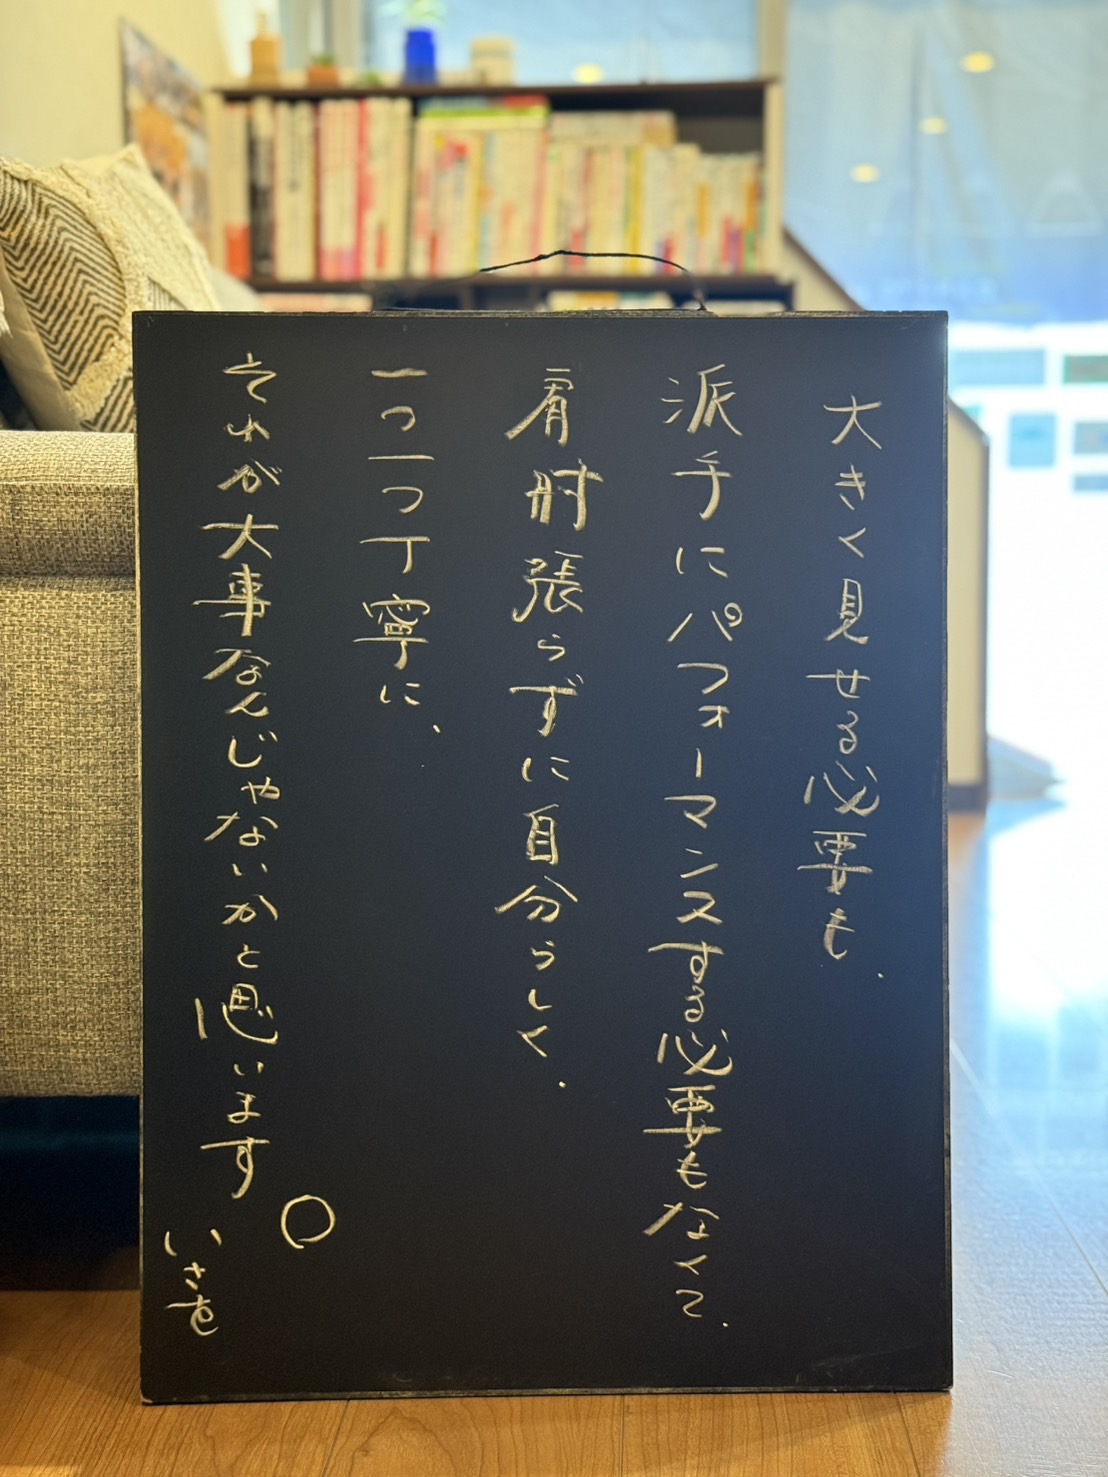 大きく見せる必要も、
派手にパフォーマンスする必要もなくて、
肩肘張らずに自分らしく、
一つ一つ丁寧に、
それが大事なんじゃないかと思います。
いさを